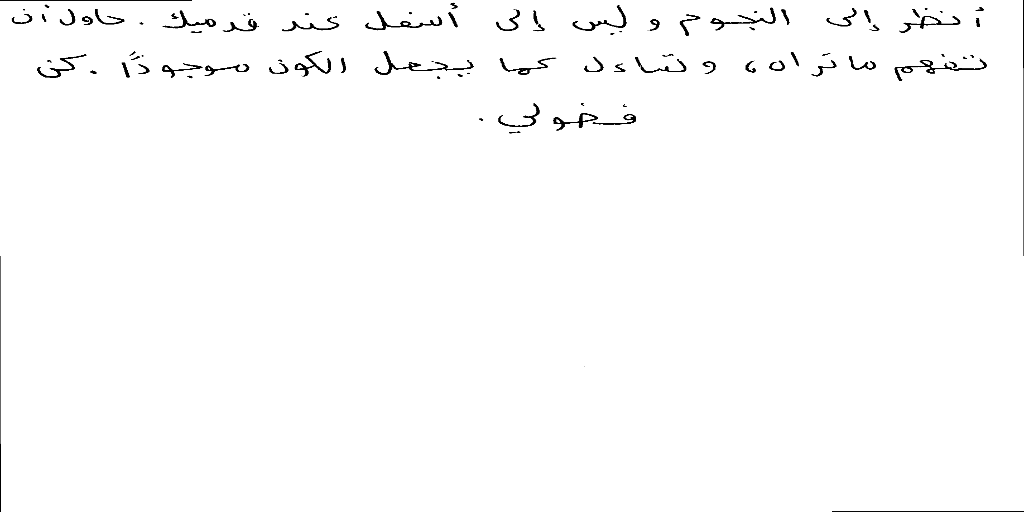 أنظر إلى النجوم و ليس إلى أسفل عند قدميك . حاول أن
تفهم ما تراه، و تساءل عما يجعل الكون موجودًا . كن
فضولي .